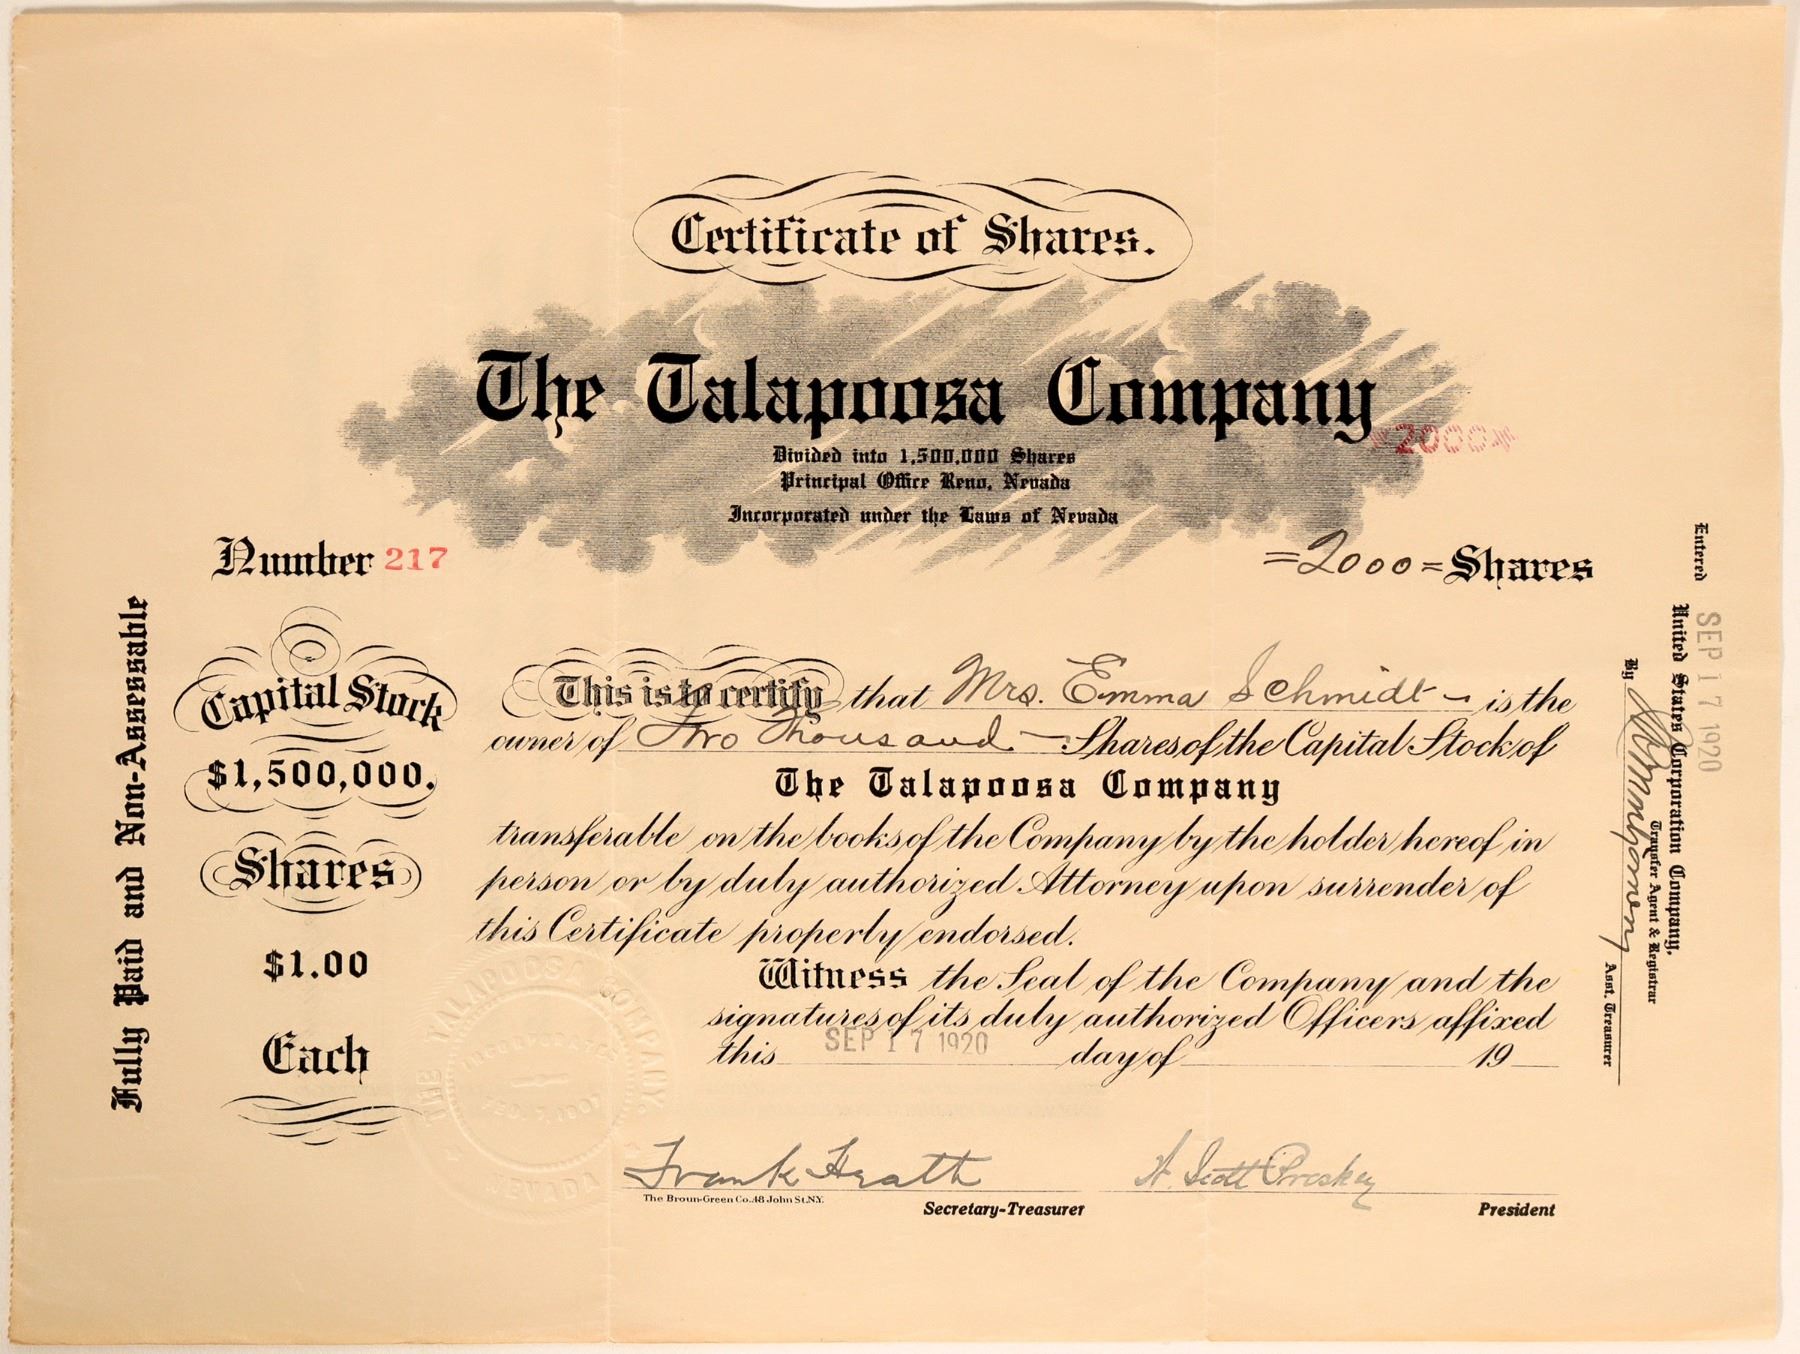 Certificate of Shares.
The Talapoosa Company
2000
Divided into 1,500,000 Shares
Principal Office Reno, Nevada
Incorporated under the Laws of Nevada
Number 217
=2000= Shares
Fully Paid and Non-Assessable
Capital Stock
$1,500,000.
Shares
$1.00
Each
This is to certify that Mrs. Emma Schmidt is the
owner of Two Thousand Shares of the Capital Stock of
The Talapoosa Company
transferable on the books of the Company by the holder hereof in
person or by duly authorized Attorney upon surrender of
this Certificate properly endorsed.
Witness the Seal of the Company and the
signatures of its duly authorized Officers affixed
this SEP 17 1920 day of 19
THE TALAPOOSA COMPANY.
INCORPORATED
FEB. 7, 1907
NEVADA
Frank Heath
The Broun-Green Co. 48 John St. N.Y.
Secretary-Treasurer
H. Scott Proskey
President
Entered SEP 17 1920
United States Corporation Company,
Transfer Agent & Registrar
By
Asst. Treasurer